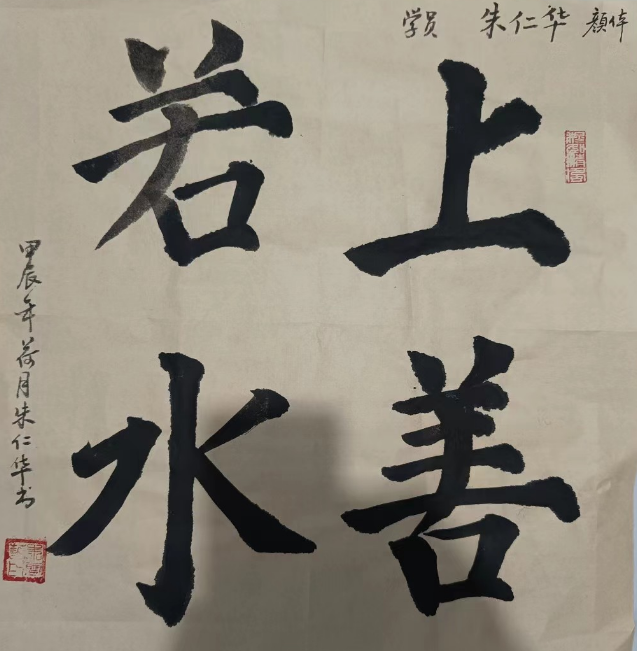 学员 朱仁华 颜体
上善
若水
甲辰年荷月朱仁华书